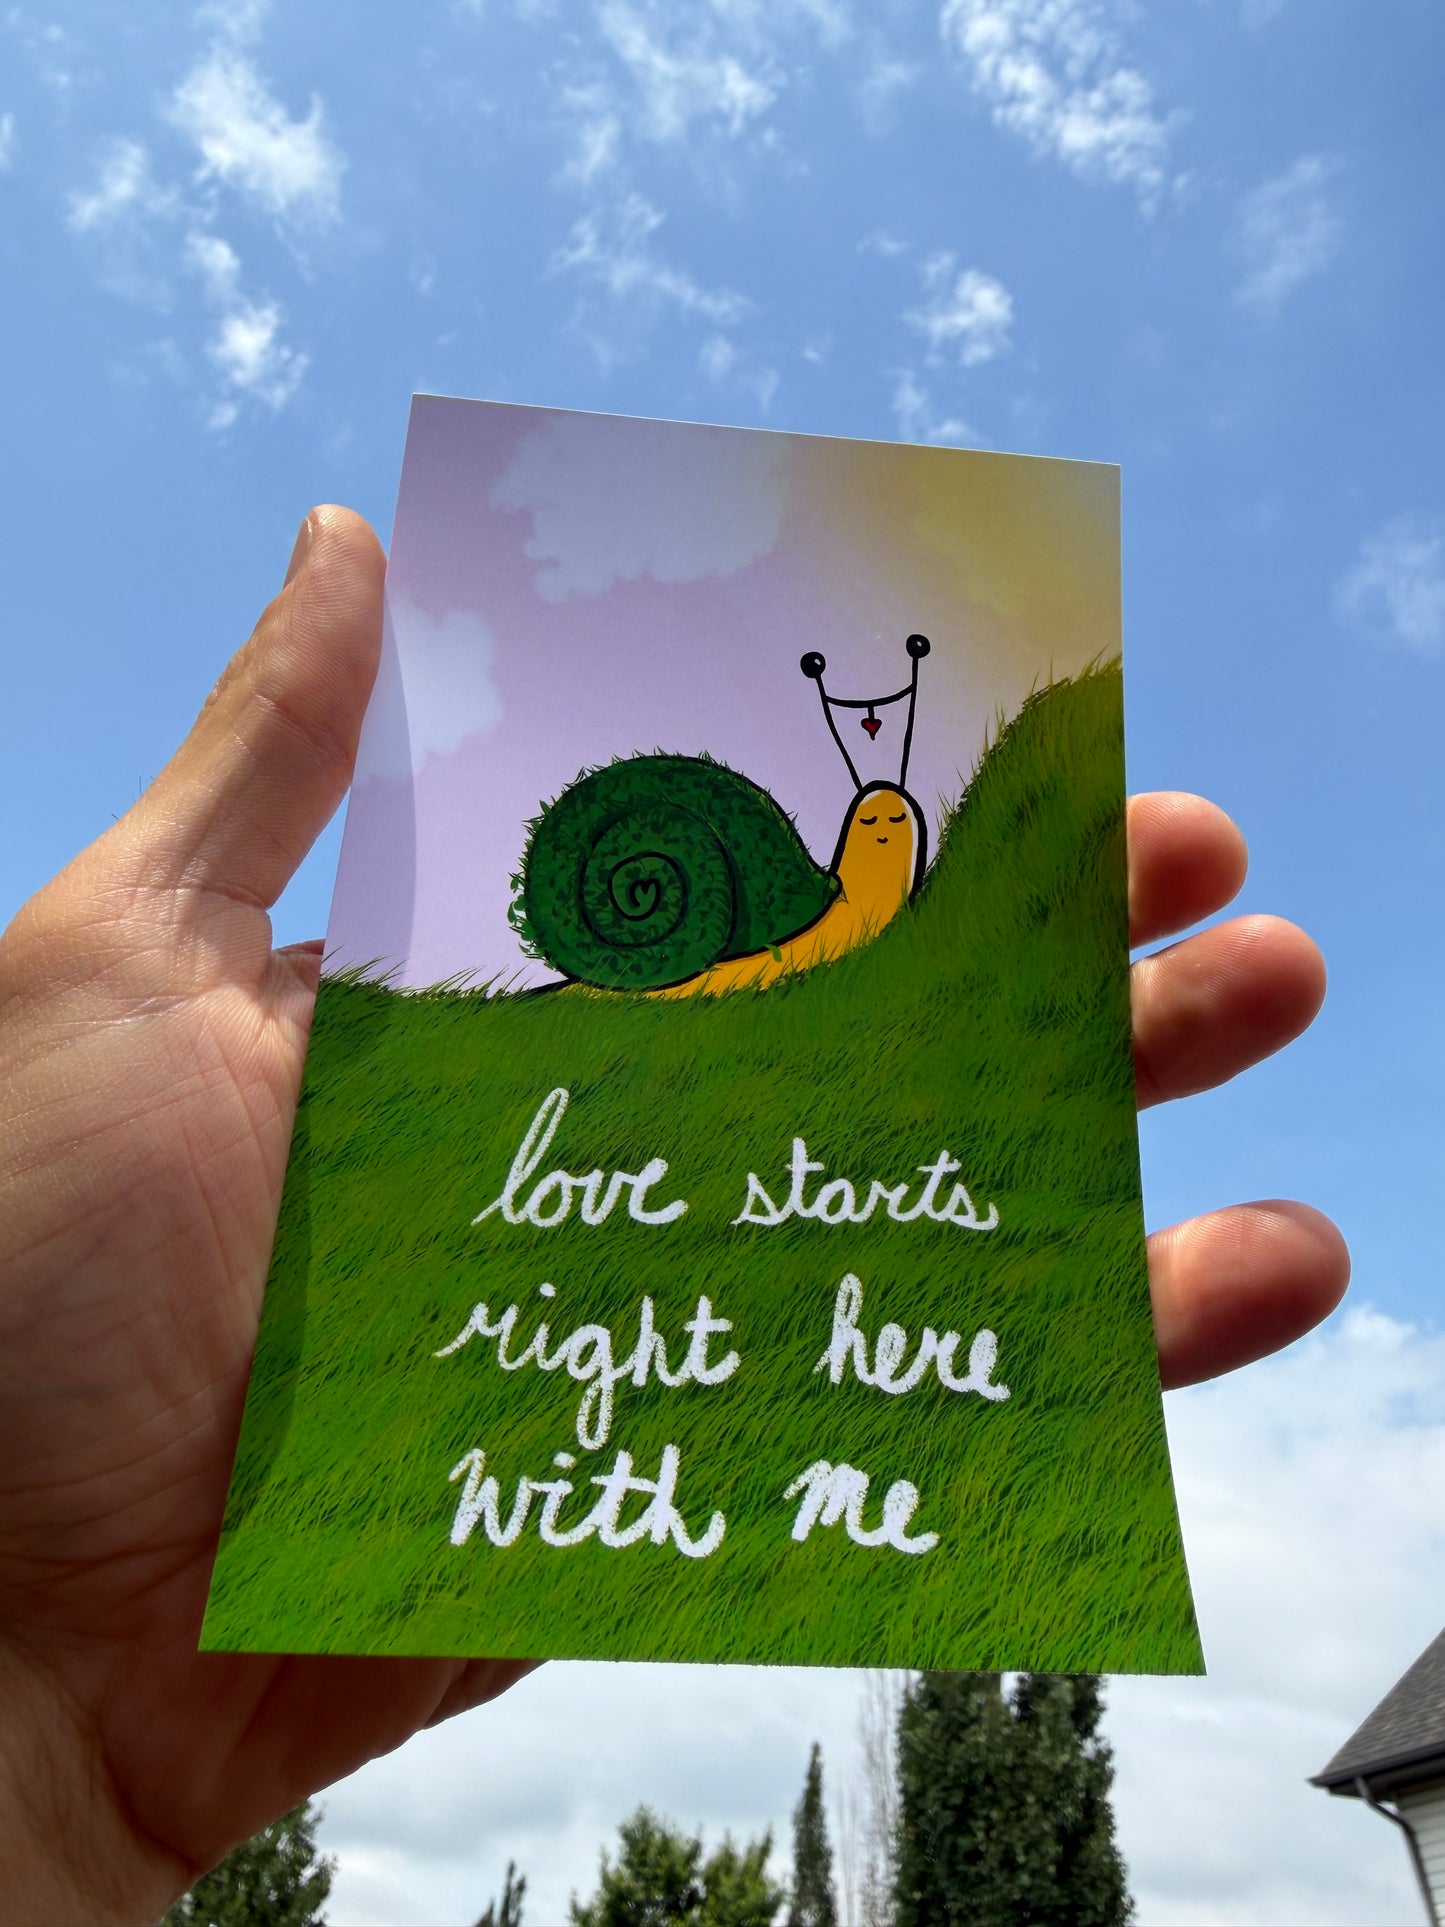 love starts
right here
with me